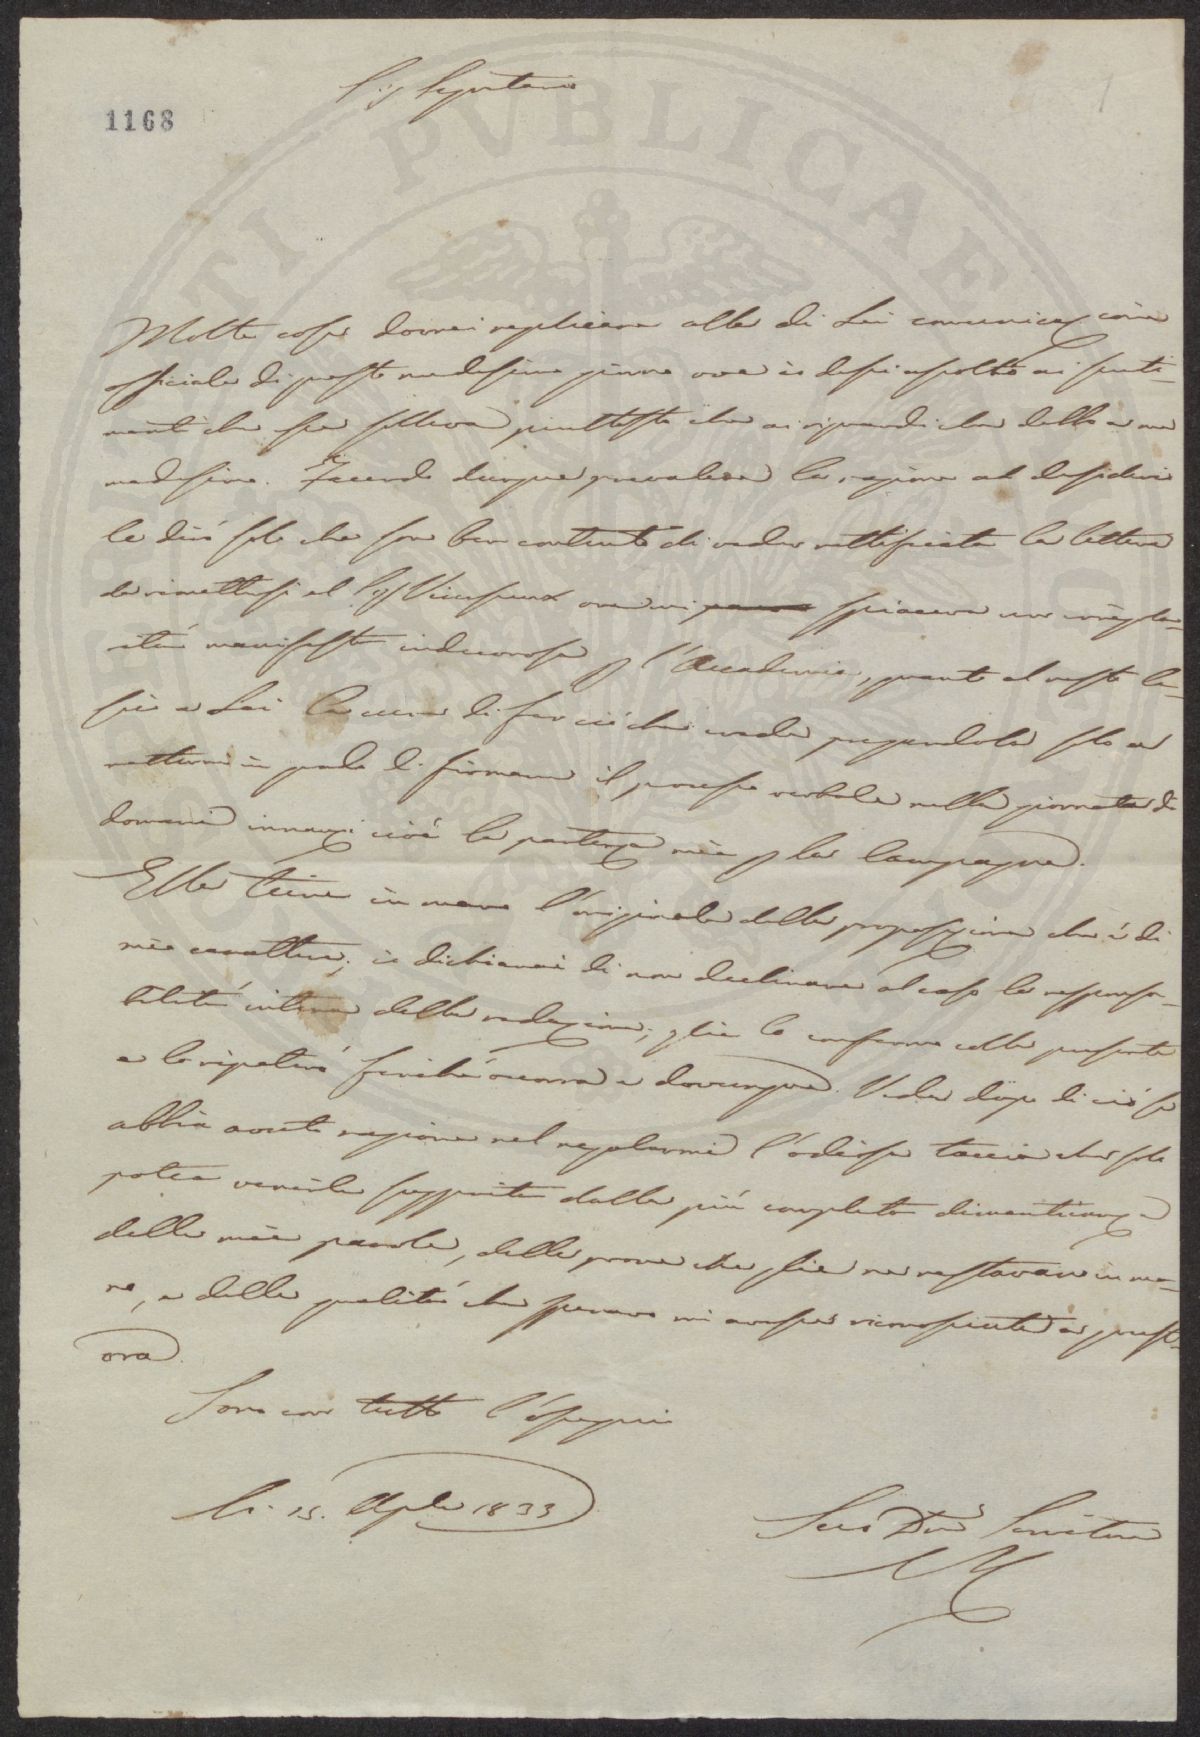 1168
1
Sig Segretario
Molte cose dovrei replicare alla di Lei comunicazione
officiale di questo medesimo giorno ove io dessi ascolto ai senti-
menti che essa solleva piuttosto che ai riguardi che debbo a me
medesimo. Facendo dunque prevalere la ragione al desiderio
le dirò solo che son ben contento di veder rettificata la lettera
da rimettersi al Sig Vieusseux ove mi spiaceva una irregola-
rità manifesta indecorosa p l'Accademia, quanto al resto la-
scio a Lei la cura di far ciò che crede pregandola solo a
mettermi in grado di firmare il processo verbale nella giornata di
domani innanzi cioè la partenza mia p la Campagna.
Ella tiene in mano l'originale della proposizione che è di
mio carattere; io dichiarai di non declinare al caso la responsa-
bilità intera della redazione; glie lo confermo colla presente
e lo ripeterò finchè occorra e dovunque. Veda dopo di ciò se
abbia avuto ragione nel regalarmi l'odiosa taccia che solo
potea venirle suggerita dalla più completa dimenticanza
delle mie parole, delle prove che glie ne restavano in ma-
no, e delle qualità che speravo mi avesse riconosciute a quest'
ora.
Sono con tutto l'ossequio
Li 15. Aple 1833
Suo Dmo Servitore